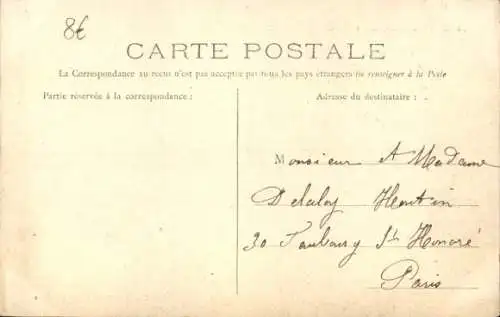 8€
CARTE POSTALE
La Correspondance au recto n'est pas acceptée par tous les pays étrangers (se renseigner à la Poste
Partie réservée à la correspondance :
Adresse du destinataire :
Monsieur et Madame
30 Faubourg St Honoré
Paris